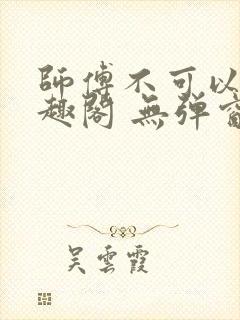 師傅不可以
趣閣 無弹
吴雲霞